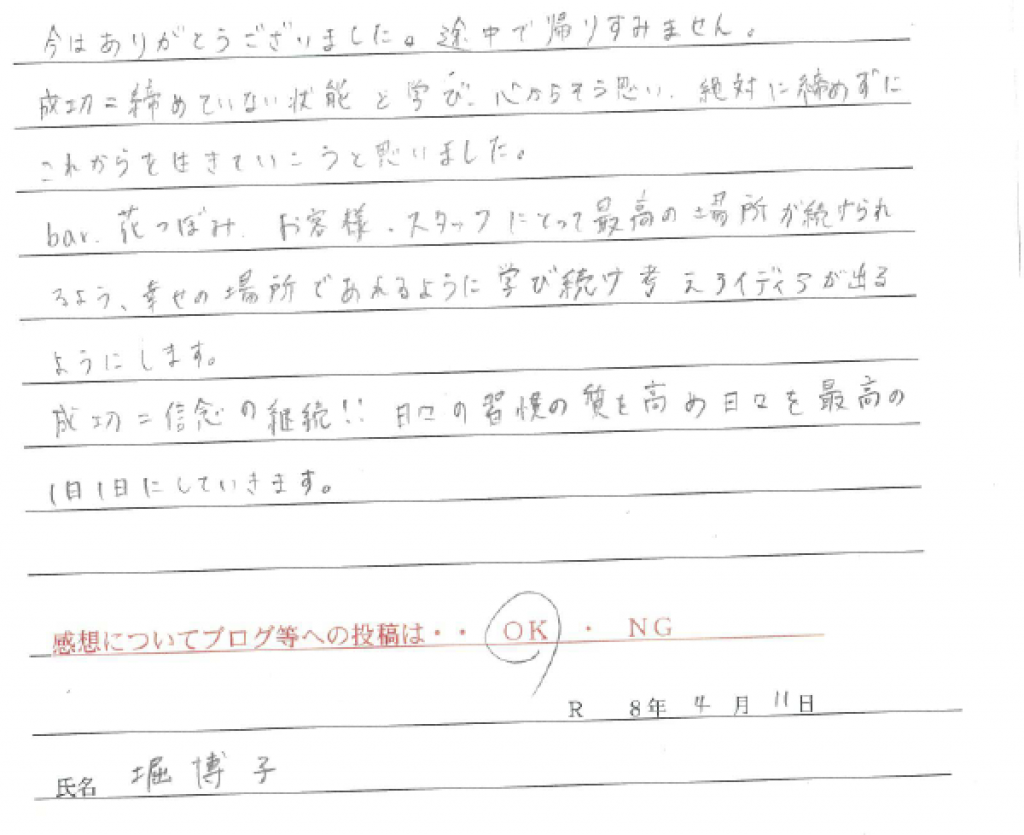 今はありがとうございました。途中で帰りすみません。
成功=締めていない状態と学び、心からそう思い、絶対に締めずに
これからを生きていこうと思いました。
bar.花つぼみ、お客様、スタッフにとって最高の場所が続けられ
るよう、幸せの場所であれるように学び続け考えアイディアが出る
ようにします。
成功=信念の継続!!日々の習慣の質を高め日々を最高の
1日1日にしていきます。
感想についてブログ等への投稿は・・ OK ・ NG
R 8年 4月 11日
氏名 堀 博子